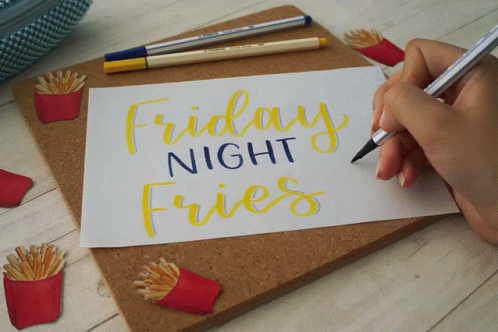 Friday
NIGHT
Fries